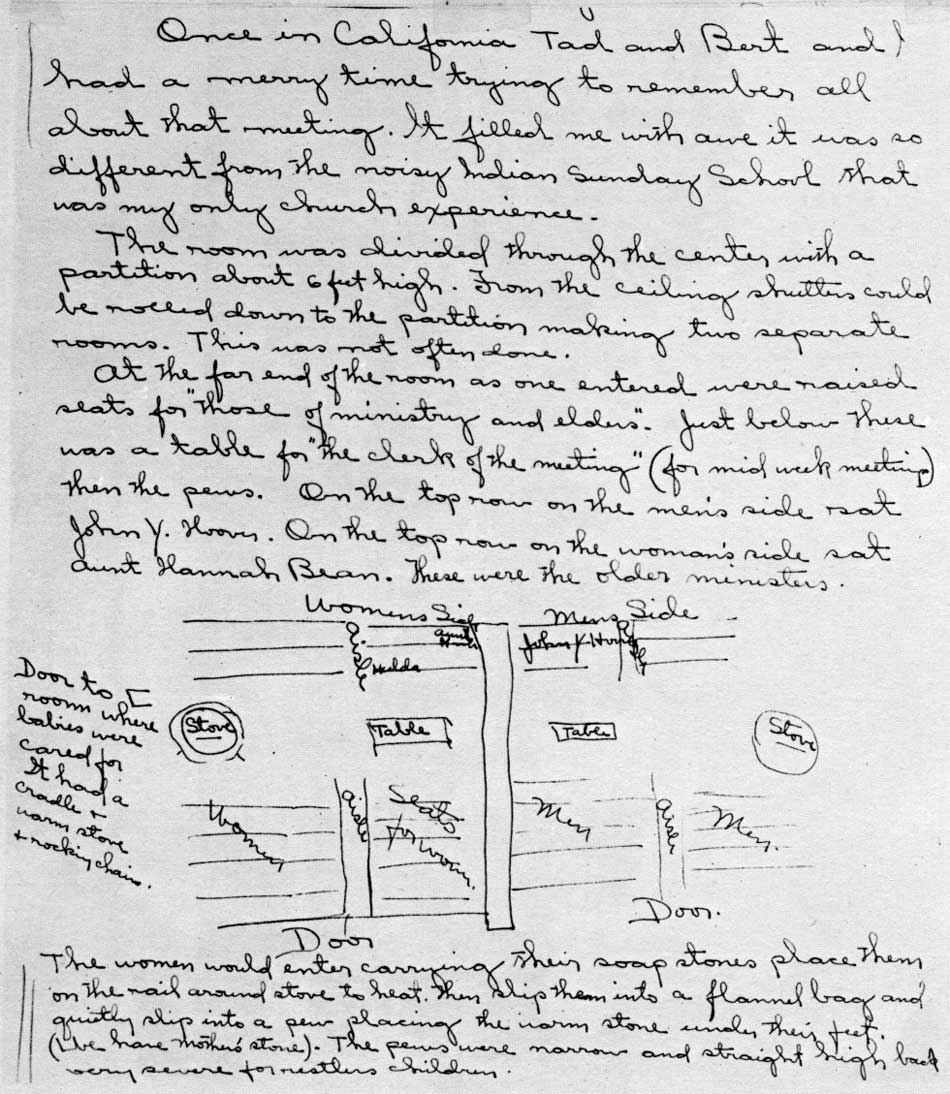 Once in California Tad and Bert and I
had a merry time trying to remember all
about that meeting. It filled me with awe it was so
different from the noisy Indian Sunday School that
was my only church experience.
The room was divided through the center with a
partition about 6 feet high. From the ceiling shutters could
be rolled down to the partition making two separate
rooms. This was not often done.
At the far end of the room as one entered were raised
seats for "those of ministry and elders". Just below these
was a table for "the clerk of the meeting" (for mid week meeting)
then the pews. On the top row on the men's side sat
John Y. Hoover. On the top row on the woman's side sat
aunt Hannah Bean. These were the older ministers.
Womens Side
Mens Side
aisle
aunt
Hannah
Hulda
John Y Hoover
aisle
Door to
room where
babies were
cared for
It had a
cradle +
warm stove
+ rocking chairs.
Stove
Table
Table
Stove
Women
aisle
Seats
for women.
Men
aisle
Men.
Door
Door.
The women would enter carrying their soap stones place them
on the rail around stove to heat. then slip them into a flannel bag and
quietly slip into a pew placing the warm stone under their feet.
(We have Mother's stone). The pews were narrow and straight high back
very severe for restless children.